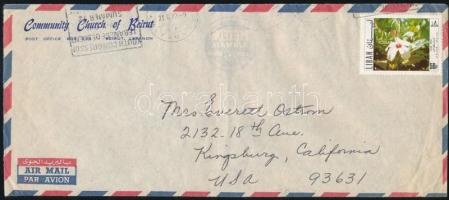 Community Church of Beirut
POST OFFICE BEIRUT, LEBANON
LIBAN
Mrs. Everett Ostrom
2132-18th Ave.
Kingsburg, California
USA 93631
بالبريد الجوي
AIR MAIL
PAR AVION